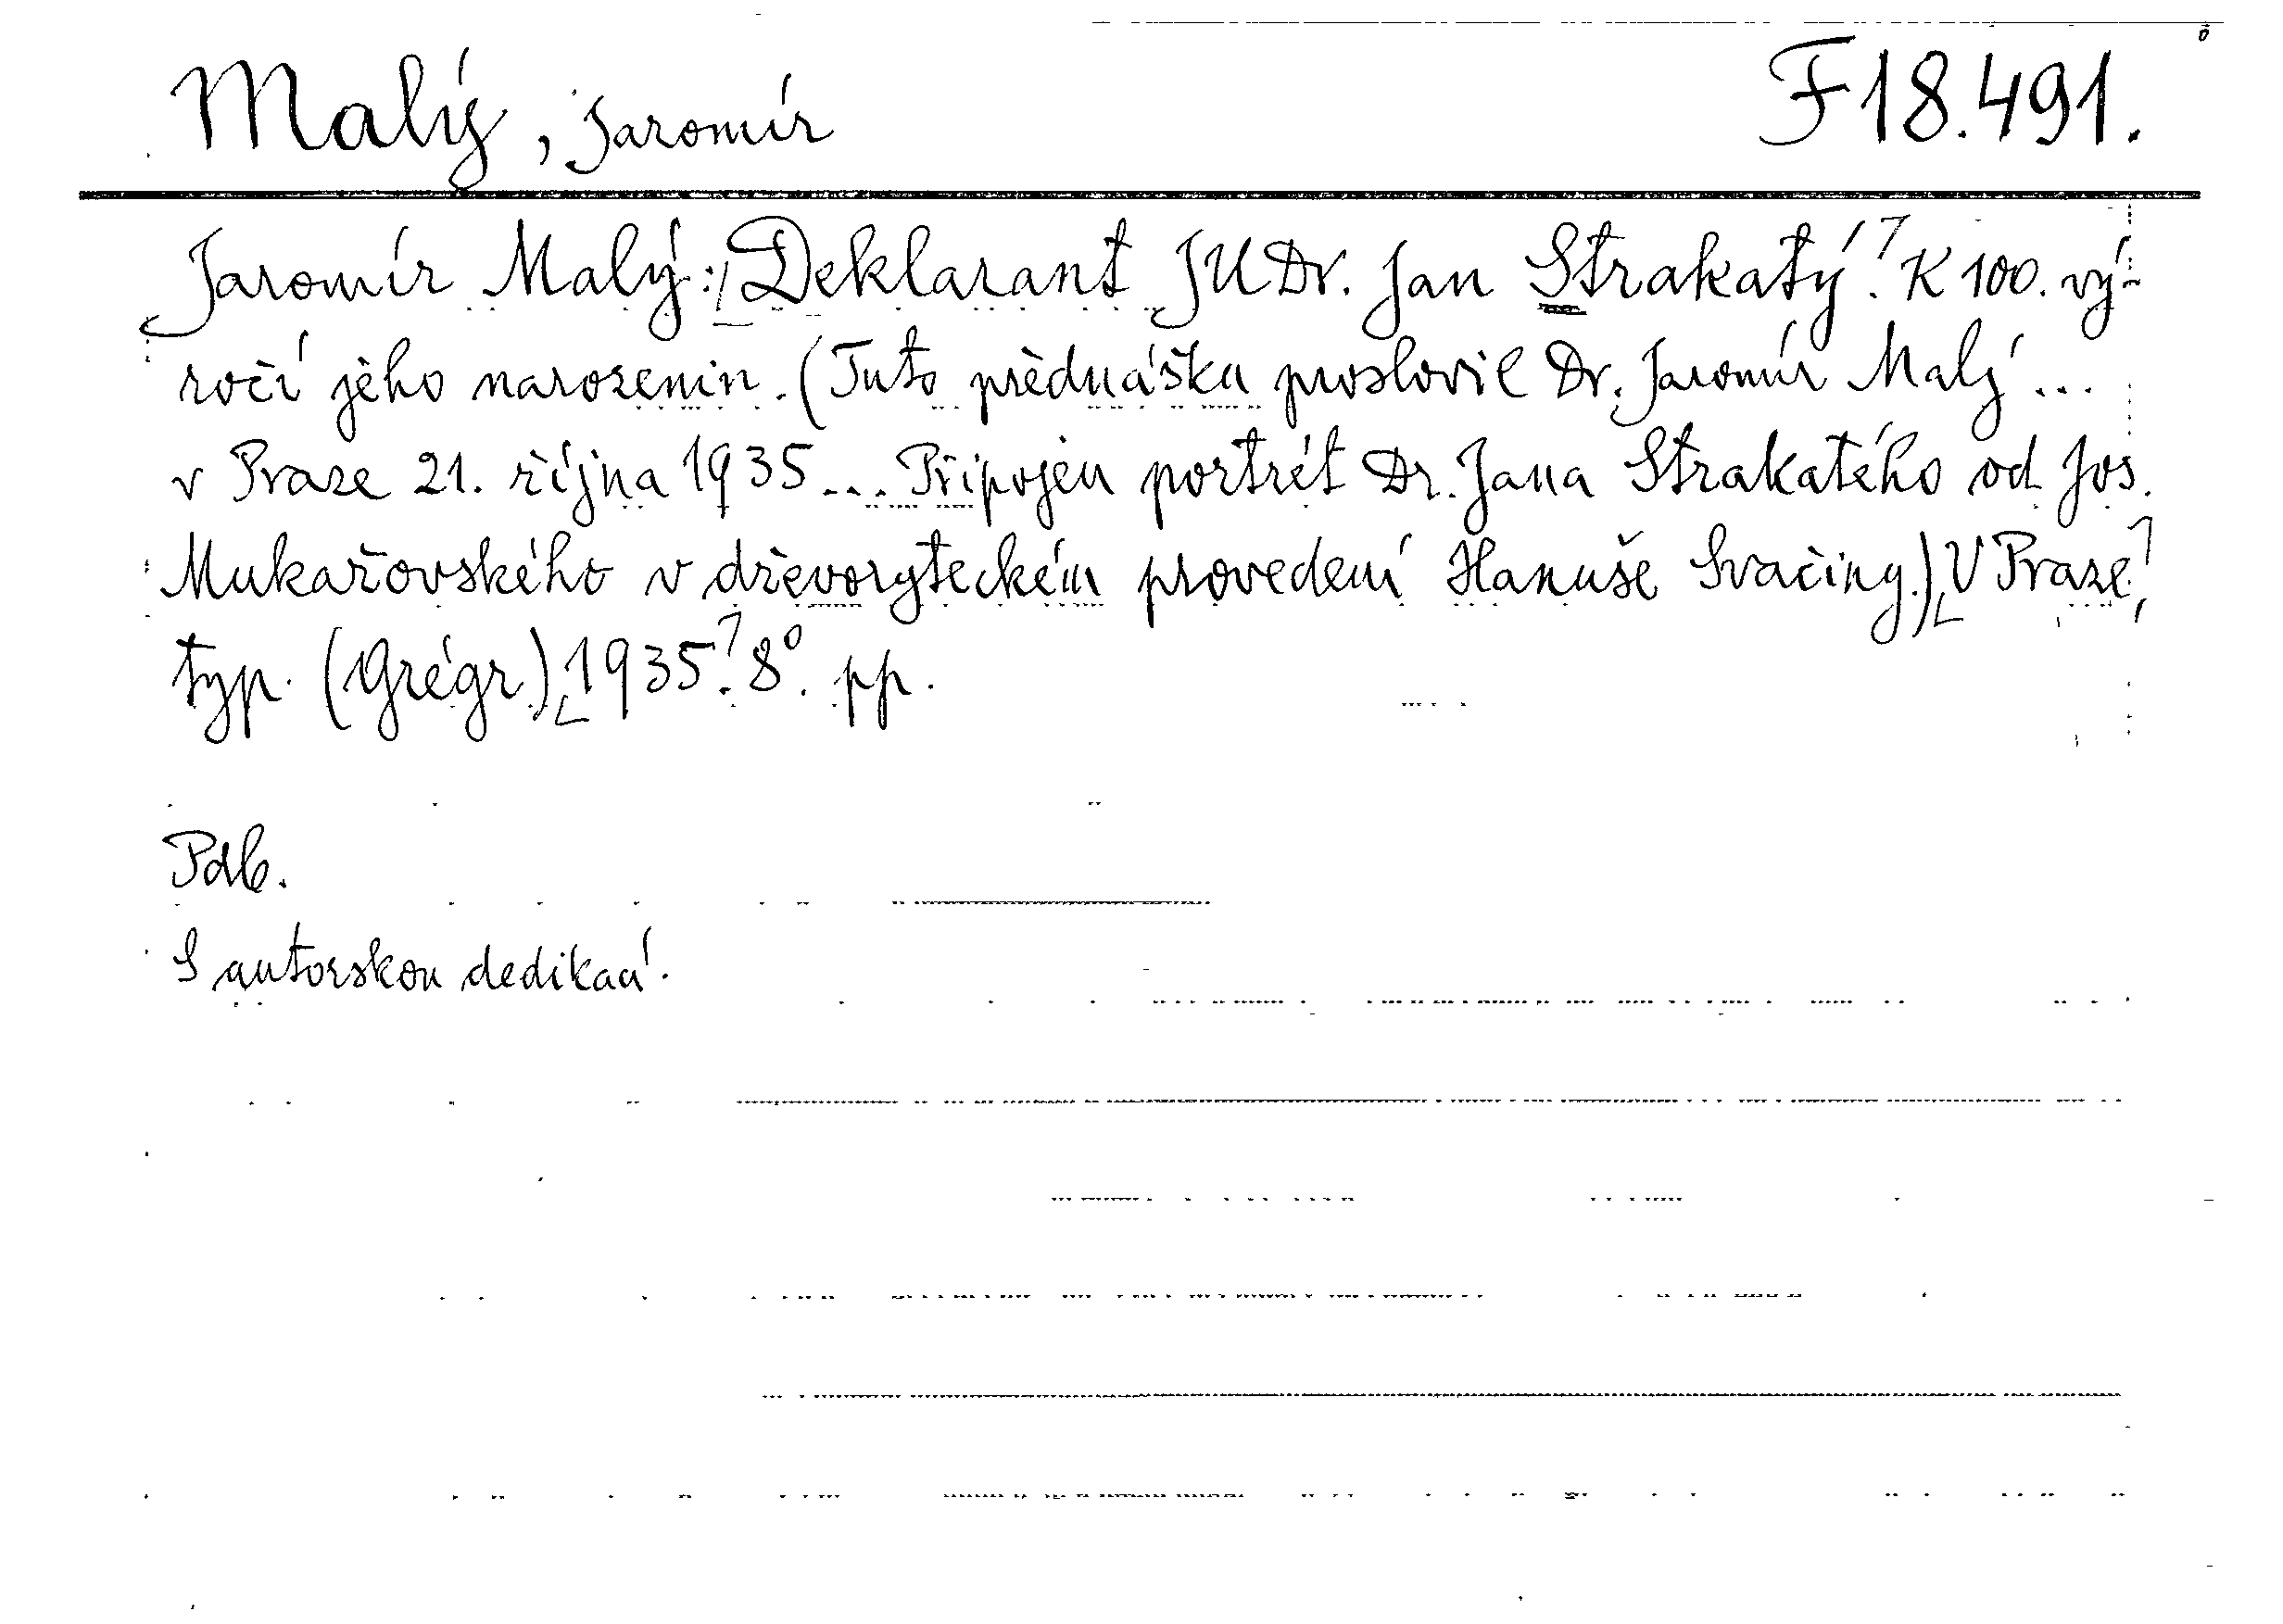 Malý, Jaromír F 18.491.
Jaromír Malý: Deklarant JUDr. Jan Strakatý. K 100. vý-
ročí jeho narozenin. (Tuto přednášku proslovil Dr. Jaromír Malý ...
v Praze 21. října 1935 ... Připojen portrét Dr. Jana Strakatého od Jos.
Mukařovského v dřevoryteckém provedení Hanuše Svačiny.) V Praze,
typ. (Grégr) 1935. 8°. pp.
Pdb.
S autorskou dedikací.